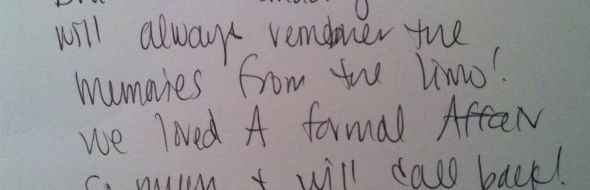 will always remember the
memories from the limo!
We loved A formal Affair
so much & will call back!